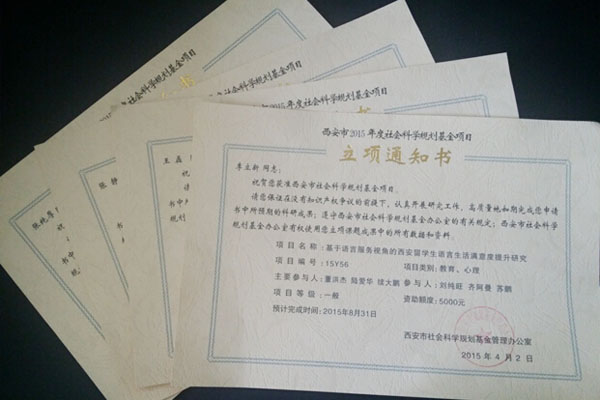 度社会科学规划基金项目
年度社会科学规划基金项目
年度社会科学规划基金项目
张静
王磊
书中
规划
西安市2015年度社会科学规划基金项目
立项通知书
同志：
祝贺您获准西安市社会科学规划基金项目。
请您保证在没有知识产权争议的前提下，认真开展研究工作，高质量地如期完成您申请
书中所预期的科研成果；遵守西安市社会科学规划基金办公室的有关规定；西安市社会科学
规划基金办公室有权使用您立项课题成果中的所有数据和资料。
项目名称：基于语言服务视角的西安留学生语言生活满意度提升研究
项目编号：15Y56 项目类别：教育、心理
主要参与人：董洪杰 陆爱华 狄大鹏 参与人：刘纯旺 齐阿曼 苏鹏
项目等级：一般 资助额度：5000元
预计完成时间：2015年8月31日
西安市社会科学规划基金管理办公室
2015年4月2日